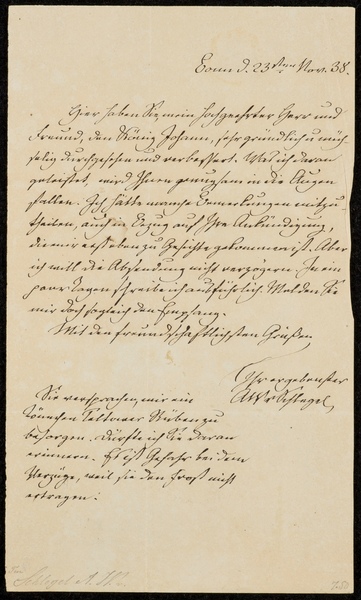 Bonn d. 23sten Nov. 38.
Hier haben Sie, mein hochgeehrter Herr und
Freund, den König Johann, sehr gründlich u müh-
selig durchgesehen und verbessert. Was ich daran
geleistet, wird Ihnen genugsam in die Augen
fallen. Ich hätte manche Bemerkungen mitzu-
theilen, auch in Bezug auf Ihre Ankündigung,
die mir so eben zu Gesichte gekommen ist. Aber
ich will die Absendung nicht verzögern. In ein
paar Tagen schreibe ich ausführlich. Melden Sie
mir doch sogleich den Empfang.
Mit den freundschaftlichsten Grüßen
Ihr ergebenster
AWvSchlegel
Sie versprachen mir ein
Tönnchen Teltower Rübchen zu
besorgen. Dürfte ich Sie daran
erinnern. Es ist Gefahr bei dem
Verzuge, weil sie den Frost nicht
ertragen.
Schlegel A. W.